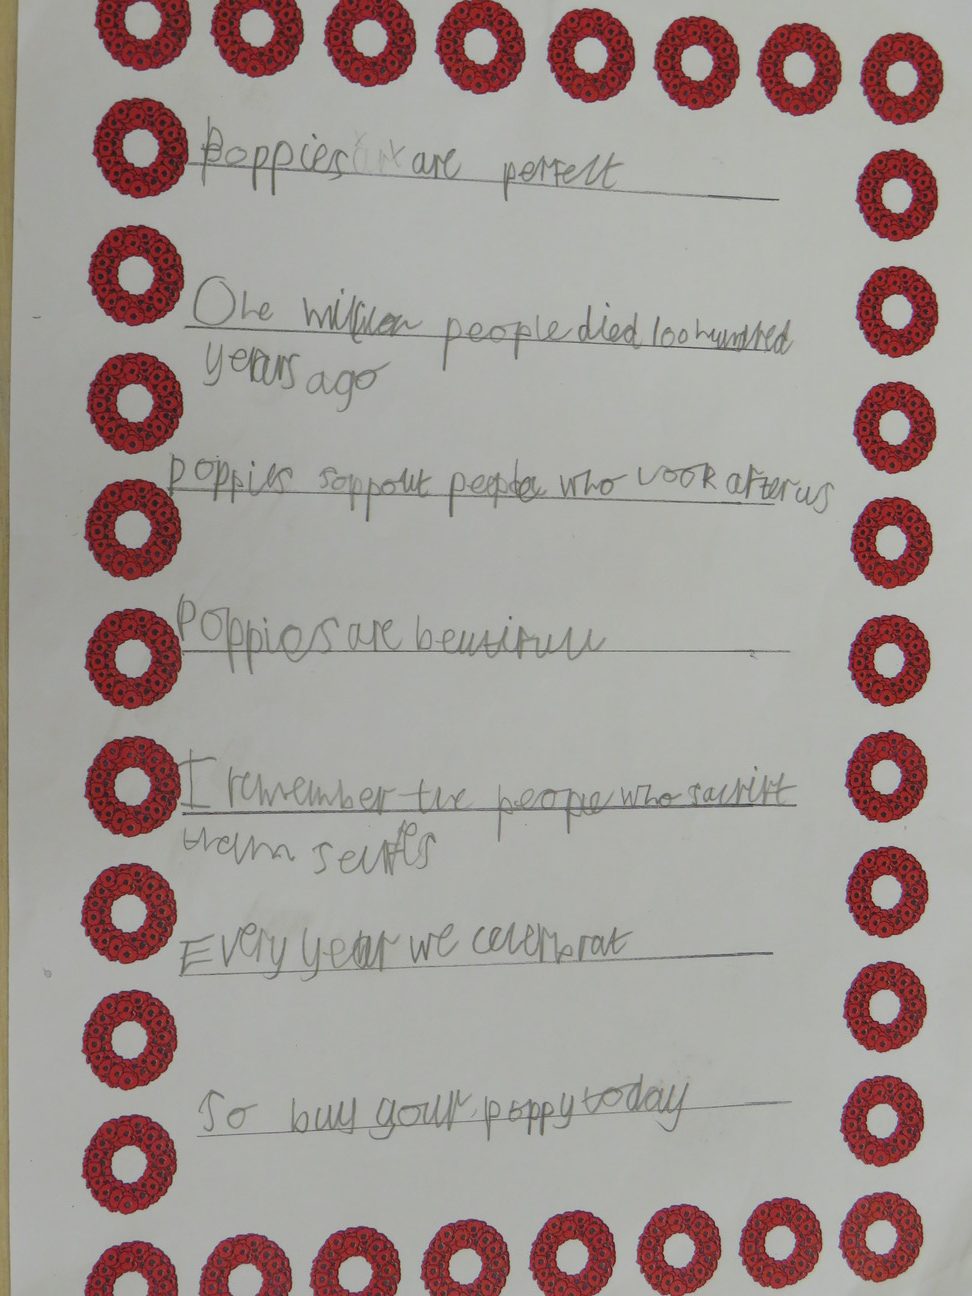 Poppies are perfect
One million people died 100 hundred
years ago
poppies soppout people who look after us
Poppies are beutifull
I remember the people who sacrift
them selfs
Every year we celerbrat
So buy your poppy today